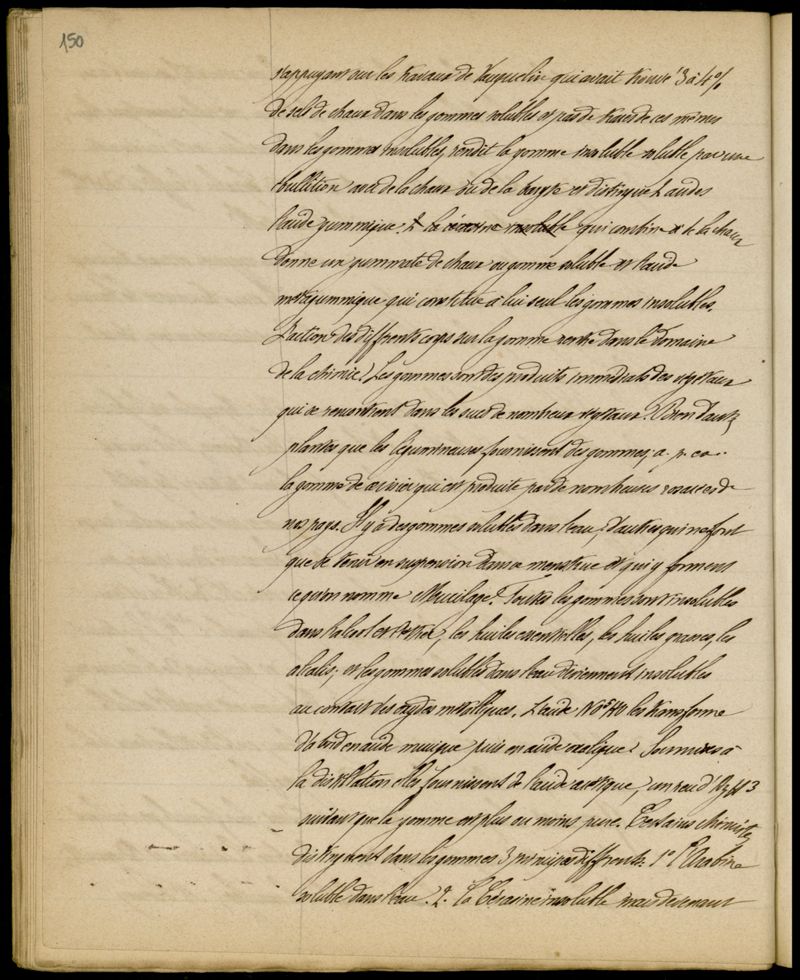 150
s'appuyant sur les travaux de Vauquelin qui avait trouvé 3 à 4 %
de sels de chaux dans les gommes solubles et pas de traces de ces mêmes
dans les gommes insolubles, rendit la gomme insoluble soluble par une
ébullition avec de la chaux ou de la baryte et distingue 2 acides
l'acide gummique. & la cérasine insoluble qui combiné à de la chaux
donne un gummate de chaux ou gomme soluble et l'acide
métagummique qui constitue à lui seul les gommes insolubles.
L'action des différents corps sur la gomme rentre dans le domaine
de la chimie. Les gommes sont des produits immédiats des végétaux
qui se rencontrent dans les sucs de nombreux végétaux. Bien d'autres
plantes que les légumineuses fournissent des gommes, a. p. ex.
la gomme de cerisier qui est produite par de nombreuses rosacées de
nos pays. Il y a des gommes solubles dans l'eau, d'autres qui ne font
que se tenir en suspension dans ce menstrue et qui y forment
ce qu'on nomme Mucilage. Toutes les gommes sont insolubles
dans l'alcool et l'éther, les huiles essentielles, les huiles grasses, les
alcalis; et les gommes solubles dans l'eau deviennent insolubles
au contact des oxydes métalliques. L'acide NO5HO les transforme
d'abord en acide mucique puis en acide oxalique. Soumises à
la distillation elles fournissent de l'acide acétique, un peu d'AzH3
suivant que la gomme est plus ou moins pure. Certains chimistes
distinguent dans les gommes 3 principes différents: 1° l'Arabine
soluble dans l'eau. 2. La Cérasine insoluble mais devenant